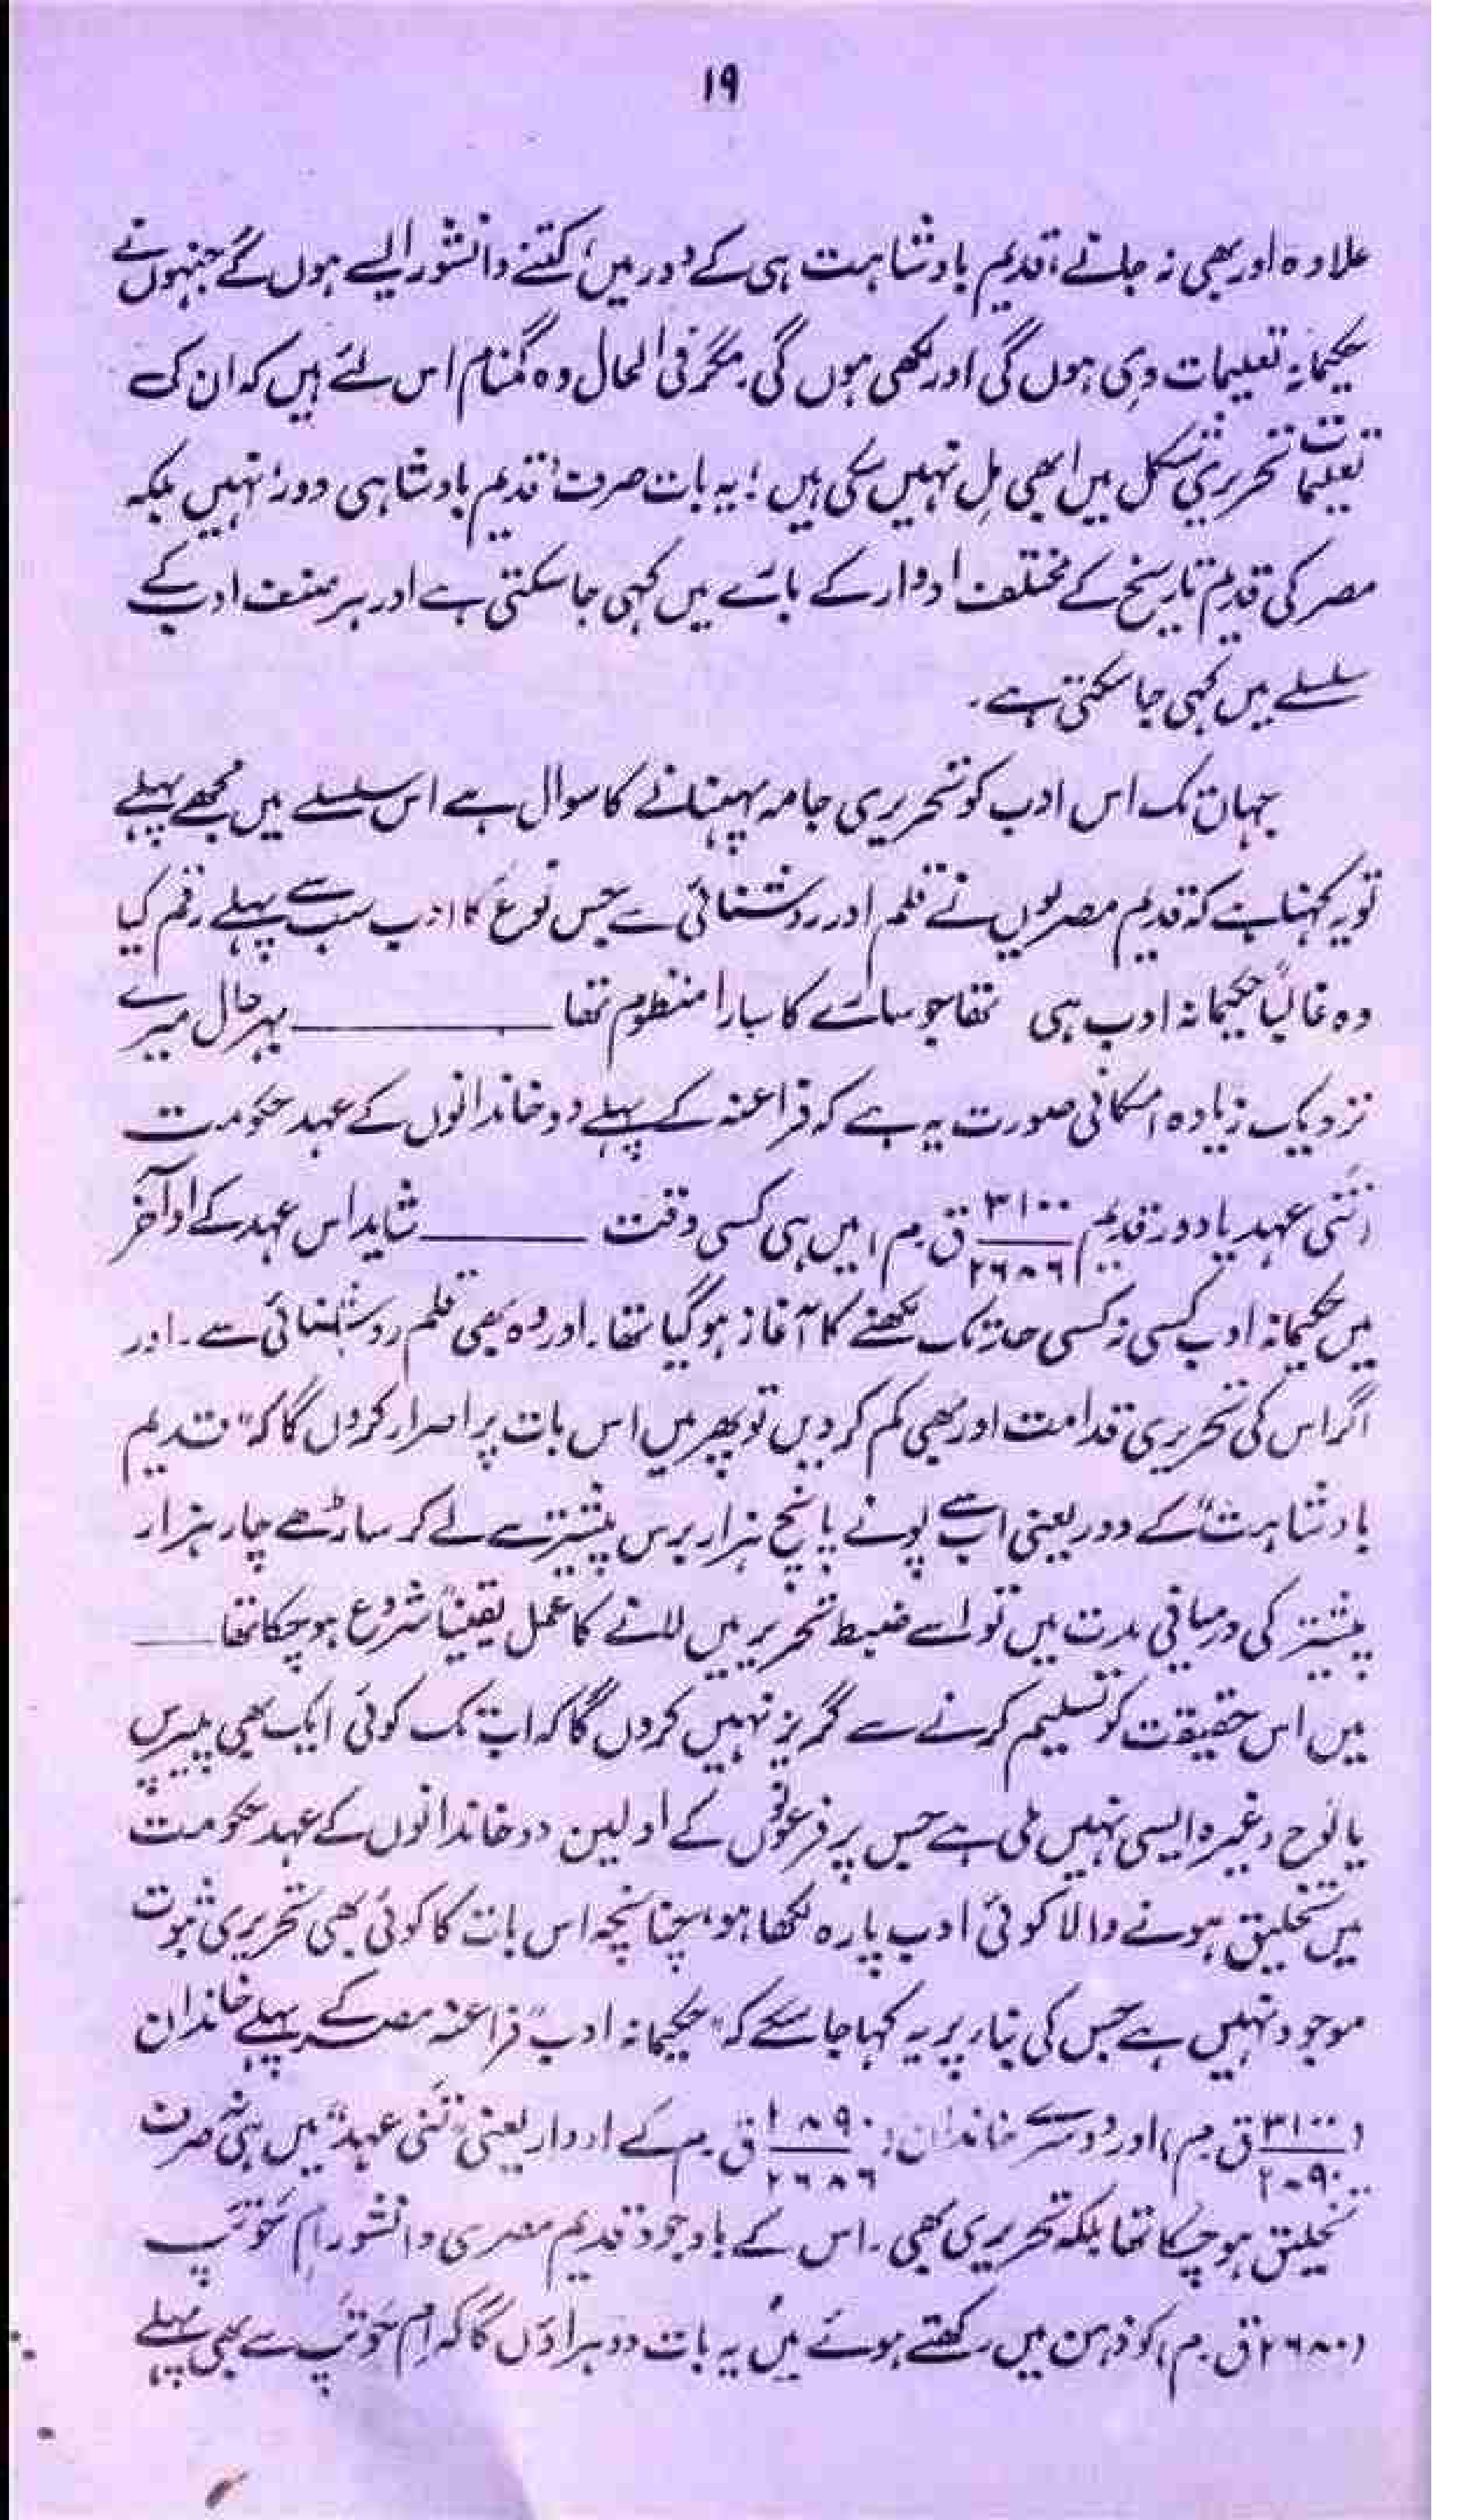 ۱۹
علاوہ اور بھی نہ جانے، قدیم بادشاہت ہی کے دور میں، کتنے دانشور ایسے ہوں گے جنہوں نے
حکیمانہ تعلیمات دی ہوں گی اور لکھی ہوں گی۔ مگر فی الحال وہ گمنام اس لئے ہیں کہ ان کی
تعلیمات تحریری شکل میں ابھی مل نہیں سکی ہیں؛ یہ بات صرف "قدیم بادشاہی دور" نہیں بلکہ
مصر کی قدیم تاریخ کے مختلف ادوار کے بارے میں کہی جا سکتی ہے اور ہر صنف ادب کے
سلسلے میں کہی جا سکتی ہے۔
جہاں تک اس ادب کو تحریری جامہ پہنانے کا سوال ہے اس سلسلے میں مجھے پہلے
تو یہ کہنا ہے کہ قدیم مصریوں نے قلم اور روشنائی سے جس نوع کا ادب سب سے پہلے رقم کیا
وہ غالباً حکیمانہ ادب ہی تھا جو سارے کا سارا منظوم تھا ــــــــ بہرحال میرے
نزدیک زیادہ امکانی صورت یہ ہے کہ فراعنہ کے پہلے دو خاندانوں کے عہد حکومت
(تنی عہد یا دور قدیم ۳۱۰۰/۲۶۸۶ ق۔م) میں ہی کسی وقت ــــــــ شاید اس عہد کے اواخر
میں حکیمانہ ادب کسی نہ کسی حد تک لکھنے کا آغاز ہو گیا تھا۔ اور وہ بھی قلم روشنائی سے۔ اور
اگر اس کی تحریری قدامت اور بھی کم کر دیں تو پھر میں اس بات پر اصرار کروں گا کہ "قدیم
بادشاہت" کے دور یعنی اب سے پونے پانچ ہزار برس پیشتر سے لے کر ساڑھے چار ہزار
پیشتر کی درمیانی مدت میں تو اسے ضبط تحریر میں لانے کا عمل یقیناً شروع ہو چکا تھا ــــــــ
میں اس حقیقت کو تسلیم کرنے سے گریز نہیں کروں گا کہ اب تک کوئی ایک بھی پیپرس
یا لوح وغیرہ ایسی نہیں ملی ہے جس پر فرعونوں کے اولین دو خاندانوں کے عہد حکومت
میں تخلیق ہونے والا کوئی ادب پارہ لکھا ہو، چنانچہ اس بات کا کوئی بھی تحریری ثبوت
موجود نہیں ہے جس کی بناء پر یہ کہا جا سکے کہ "حکیمانہ ادب" فراعنہ مصر کے پہلے خاندان
(۳۱۰۰/۲۸۹۰ ق۔م) اور دوسرے خاندان (۲۸۹۰/۲۶۸۶ ق۔م کے ادوار یعنی "تنی عہد" میں ہی نہ صرف
تخلیق ہو چکا تھا بلکہ تحریری بھی۔ اس کے باوجود قدیم مصری دانشور اِم حَوتپ
(۲۶۸۰ ق۔م) کو ذہن میں رکھتے ہوئے میں یہ بات دوہراؤں گا کہ اِم حَوتپ سے بھی پہلے